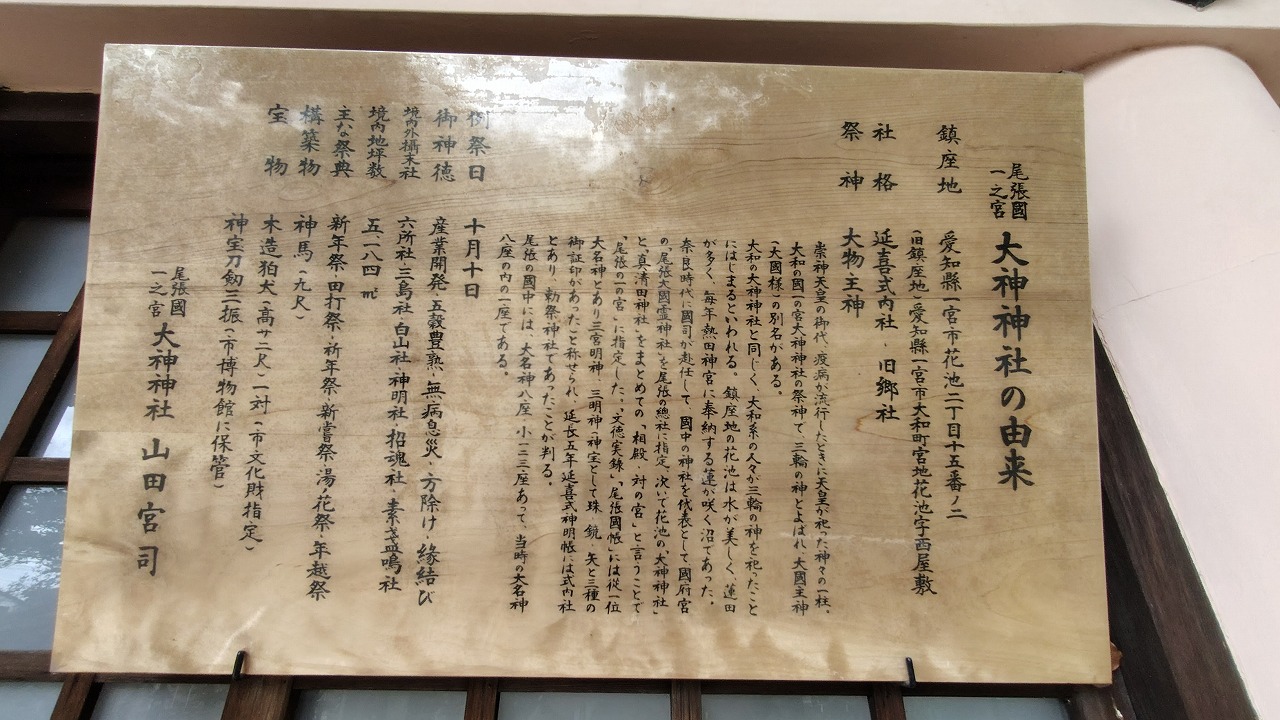 尾張國
一之宮
大神神社の由来
鎮座地 愛知縣一宮市花池二丁目十五番ノ二
(旧鎮座地)愛知縣一宮市大和町宮地花池字西屋敷
社格 延喜式内社、旧郷社
祭神 大物主神
崇神天皇の御代、疫病が流行したときに天皇が祀った神々の一柱。
大和の國一の宮大神神社の祭神で、三輪の神とよばれ、大國主神
(大國様)の別名がある。
大和の大神神社と同じく、大和系の人々が三輪の神を祀ったこと
にはじまるといわれる。鎮座地の花池は水が美しく、蓮田
が多く、毎年熱田神宮に奉納する蓮が咲く沼であった。
奈良時代に國司が赴任して、國中の神社を代表として國府宮
の「尾張大國霊神社」を尾張の總社に指定、次いで花池の「大神神社」
と、「真清田神社」をまとめての「相殿、対の宮」と言うことで
「尾張の一の宮」に指定した。「文徳実録」「尾張國帳」には従一位
大名神とあり三宮明神、三明神(神宝として珠、鏡、矢と三種の
御証印があった)と称せられ、延長五年延喜式神明帳には式内社
とあり、勅祭神社であったことが判る。
尾張の國中には、大名神八座、小一二三座あって、当時の大名神
八座の内の一座である。
例祭日 十月十日
御神徳 産業開発、五穀豊熟、無病息災、方除け、縁結び
境内外攝末社 六所社 三島社 白山社 神明社 招魂社、素盞鳴社
境内地坪数 五、一八四㎡
主な祭典 新年祭、田打祭、祈年祭、新嘗祭、湯の花祭、年越祭
構築物 神馬(九尺)
木造狛犬(高サ二尺)一対(市文化財指定)
宝物 神宝刀劔三振(市博物館に保管)
尾張國
一之宮
大神神社 山田宮司